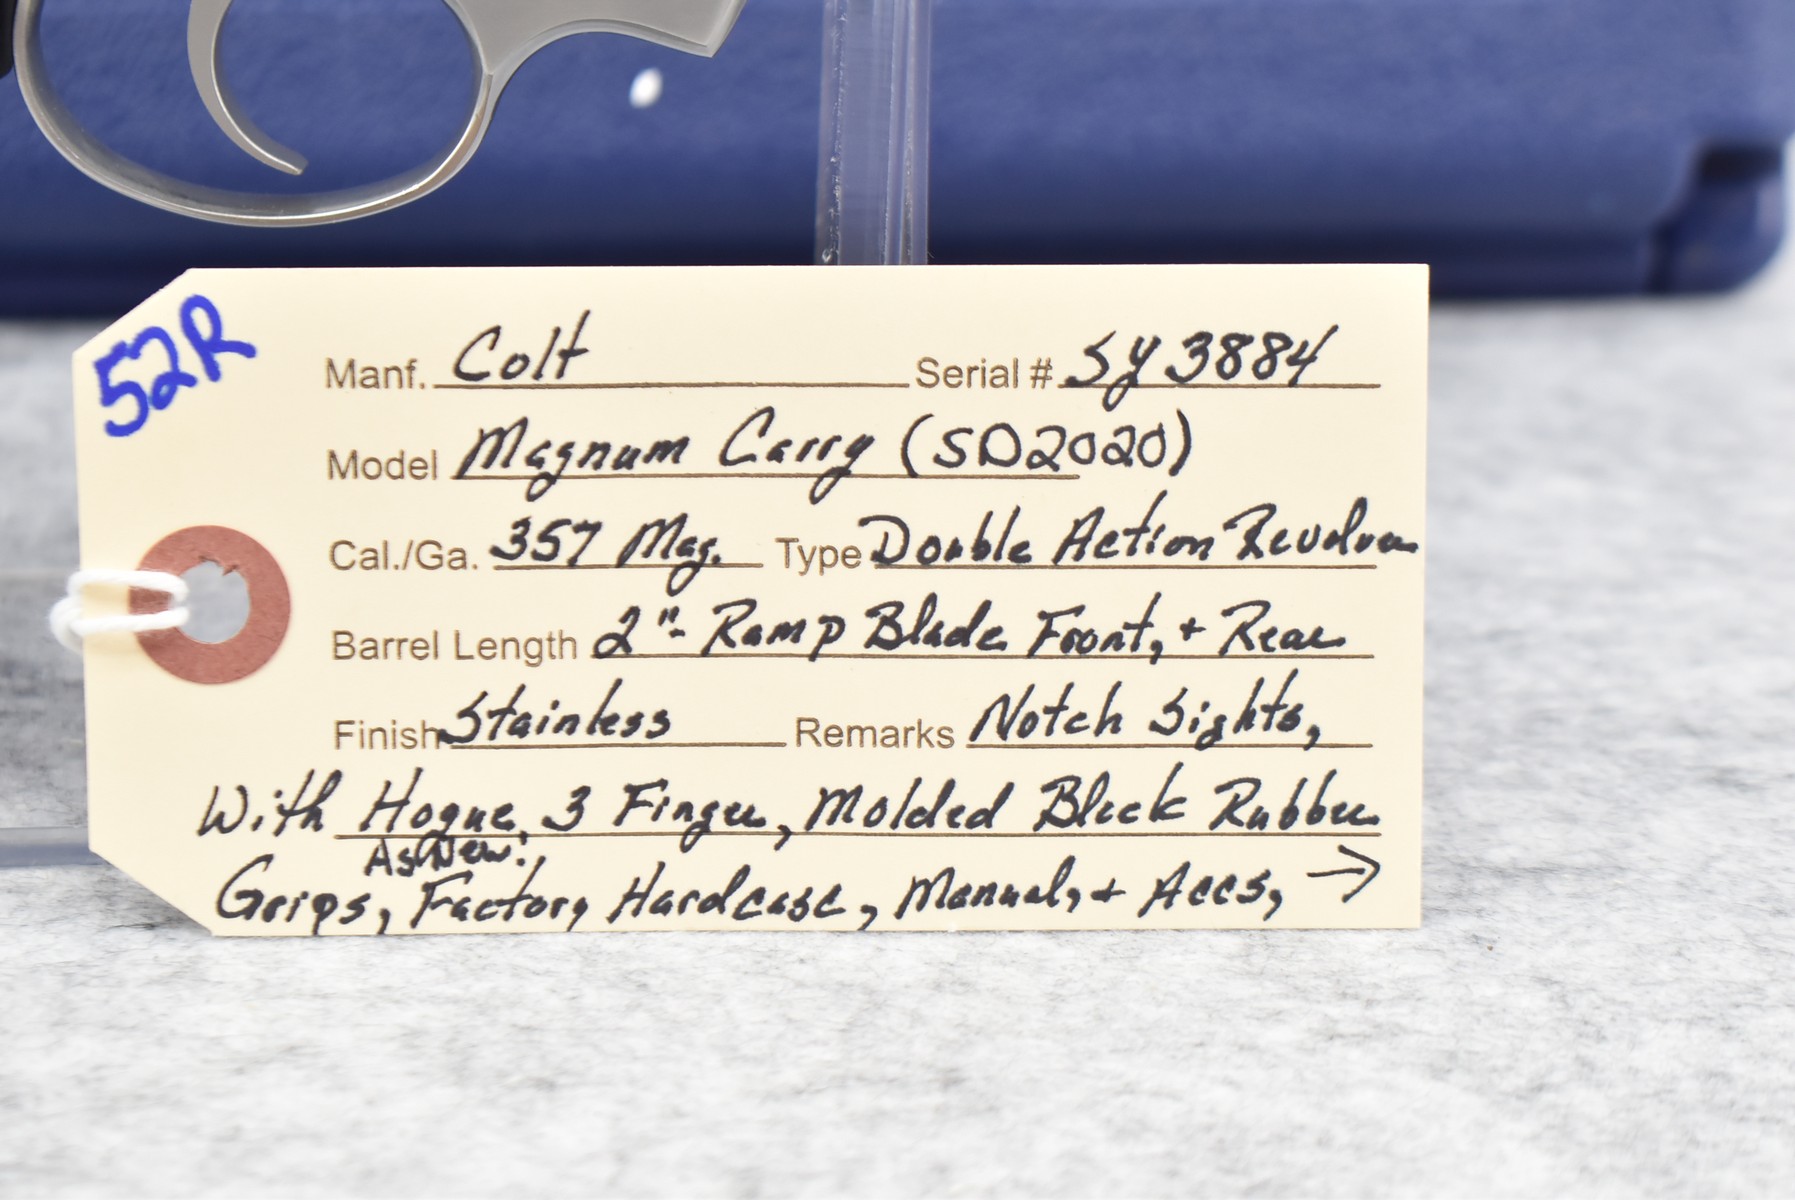 52R
Manf. Colt Serial # SY3884
Model Magnum Carry (SD2020)
Cal./Ga. 357 Mag. Type Double Action Revolver
Barrel Length 2"- Ramp Blade Front, + Rear
Finish Stainless Remarks Notch Sights,
With Hogue, 3 Finger, Molded Black Rubber
As New!
Grips, Factory Hardcase, Manual, + Accs, →